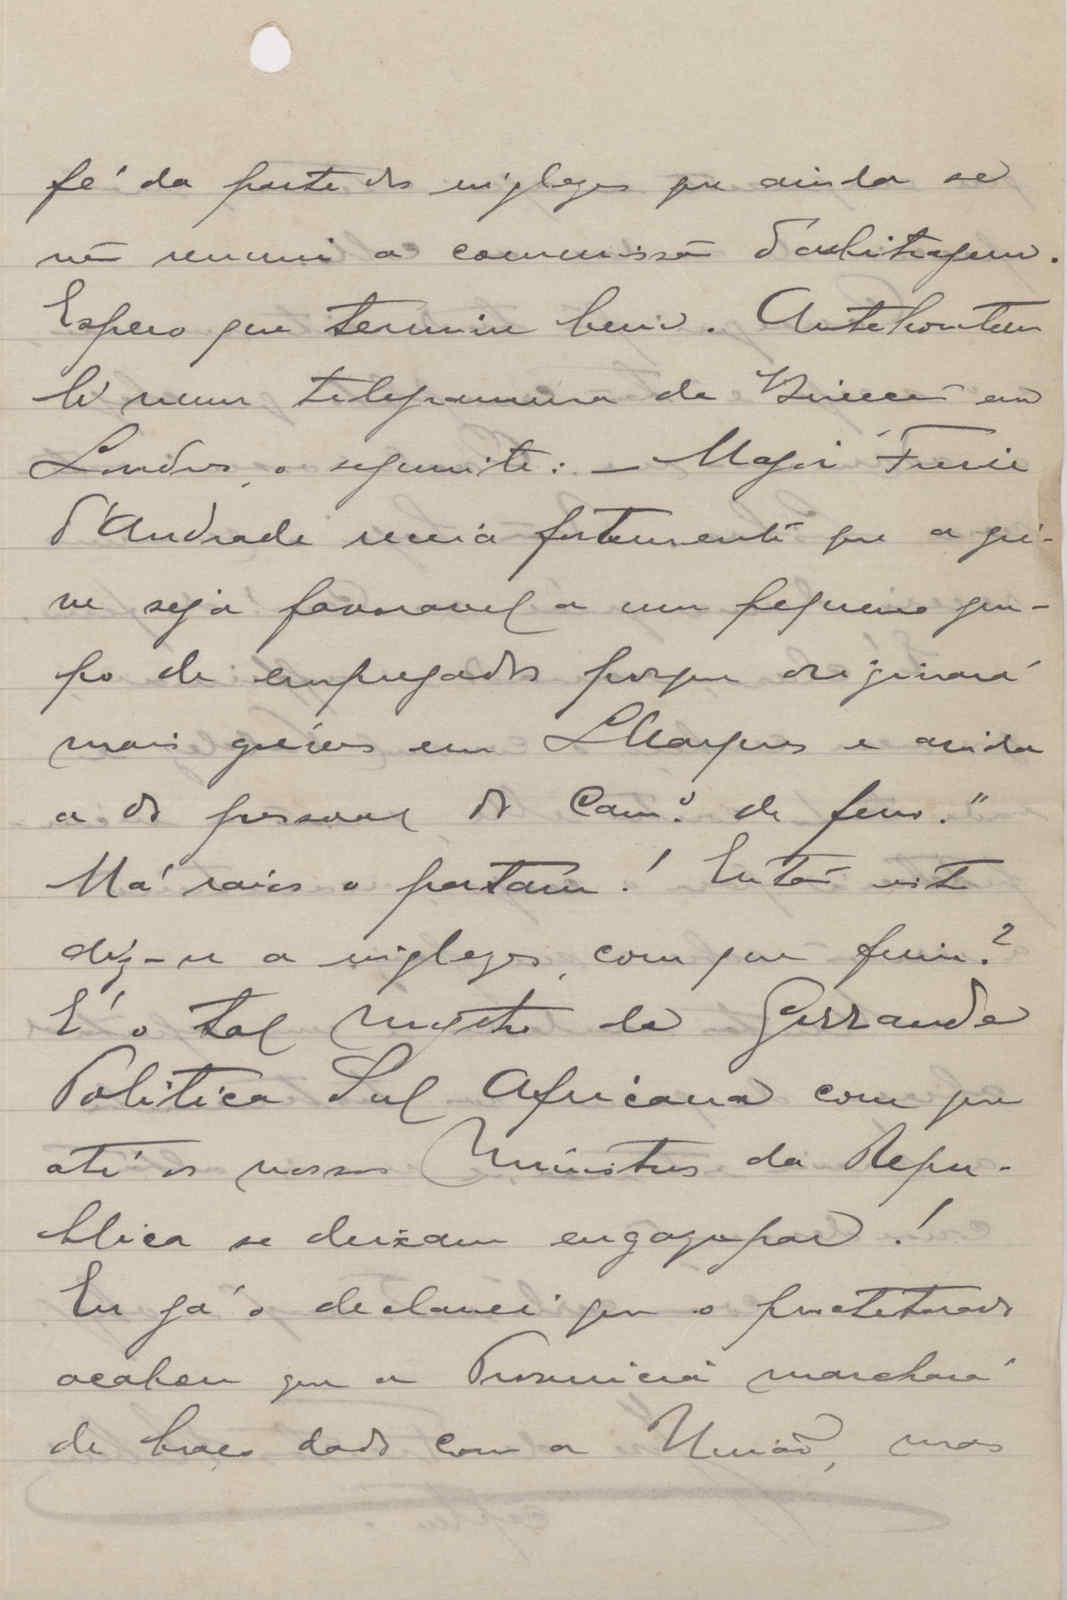 fé da parte dos inglezes que ainda se
não reuniu a commissão d'arbitragem.
Espero que termine bem. Antehontem
li num telegramma de em
Londres, o seguinte: — Major Freire
d'Andrade receia fortemente que a gré-
ve seja favoravel a um pequeno gru-
po de empregados porque originará
mais gréves em LMarques e ainda
a do pessoal do Camº. de ferro."
Má raios o partam! Então isto
diz-se a inglezes, com que fim?
E' o tal mytho da Gerrande
Politica Sul Africana com que
até os nossos Ministros da Repu-
blica se deixam engazupar!
Eu já o declarei que o protetorado
acabou que a Provincia marchará
de braço dado com a União, mas